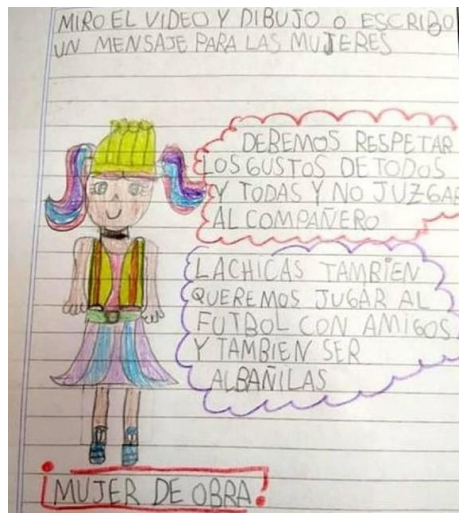 MIRO EL VIDEO Y DIBUJO O ESCRIBO
UN MENSAJE PARA LAS MUJERES
DEBEMOS RESPETAR
LOS GUSTOS DE TODOS
Y TODAS Y NO JUZGAR
AL COMPAÑERO
LACHICAS TAMBIEN
QUEREMOS JUGAR AL
FUTBOL CON AMIGOS
Y TAMBIEN SER
ALBAÑILAS
MUJER DE OBRA